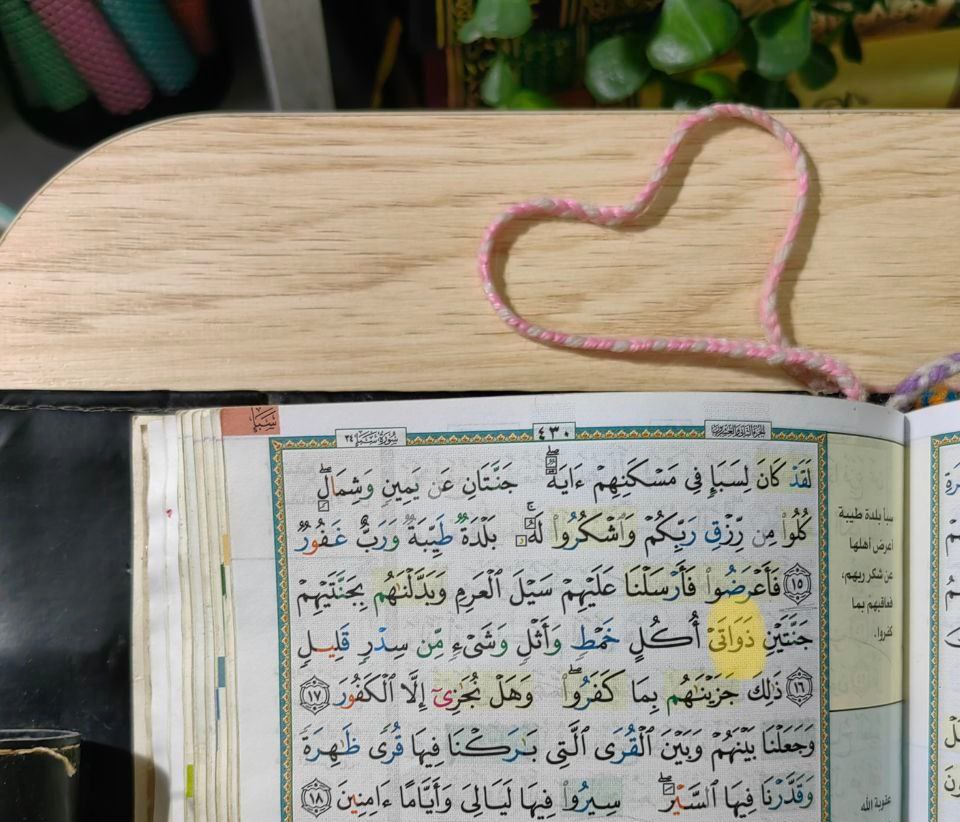 سَبَإ
سُورَةُ سَبَإٍ ٣٤
٤٣٠
الجزء الثاني والعشرون
لَقَدْ كَانَ لِسَبَإٍ فِي مَسْكَنِهِمْ ءَايَةٌۖ جَنَّتَانِ عَن يَمِينٍ وَشِمَالٍۖ
كُلُوا۟ مِن رِّزْقِ رَبِّكُمْ وَٱشْكُرُوا۟ لَهُۥۚ بَلْدَةٌ طَيِّبَةٌ وَرَبٌّ غَفُورٌ
١٥ فَأَعْرَضُوا۟ فَأَرْسَلْنَا عَلَيْهِمْ سَيْلَ ٱلْعَرِمِ وَبَدَّلْنَٰهُم بِجَنَّتَيْهِمْ
جَنَّتَيْنِ ذَوَاتَىْ أُكُلٍ خَمْطٍ وَأَثْلٍ وَشَىْءٍ مِّن سِدْرٍ قَلِيلٍ
١٦ ذَٰلِكَ جَزَيْنَٰهُم بِمَا كَفَرُوا۟ۖ وَهَلْ نُجَٰزِىٓ إِلَّا ٱلْكَفُورَ ١٧
وَجَعَلْنَا بَيْنَهُمْ وَبَيْنَ ٱلْقُرَى ٱلَّتِى بَٰرَكْنَا فِيهَا قُرًى ظَٰهِرَةً
وَقَدَّرْنَا فِيهَا ٱلسَّيْرَۖ سِيرُوا۟ فِيهَا لَيَالِىَ وَأَيَّامًا ءَامِنِينَ ١٨
سبأ بلدة طيبة
أعرض أهلها
عن شكر ربهم،
فعاقبهم بما
كفروا.
عقوبة الله